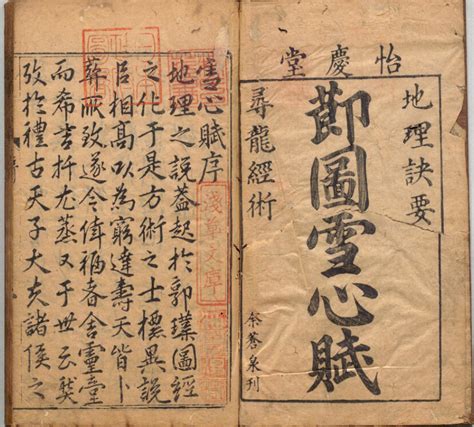 怡慶堂
地理訣要
莭圖雪心賦
尋龍經術
余蒼泉刊
雪心賦序
地理之說蓋起於郭璞圖經
之化于是方術之士標異說
相高以為窮達壽夭皆卜
葬所致遂令福者舍靈臺
而希吉又于世云
攷於禮古天子大夫諸侯之
淺草文庫